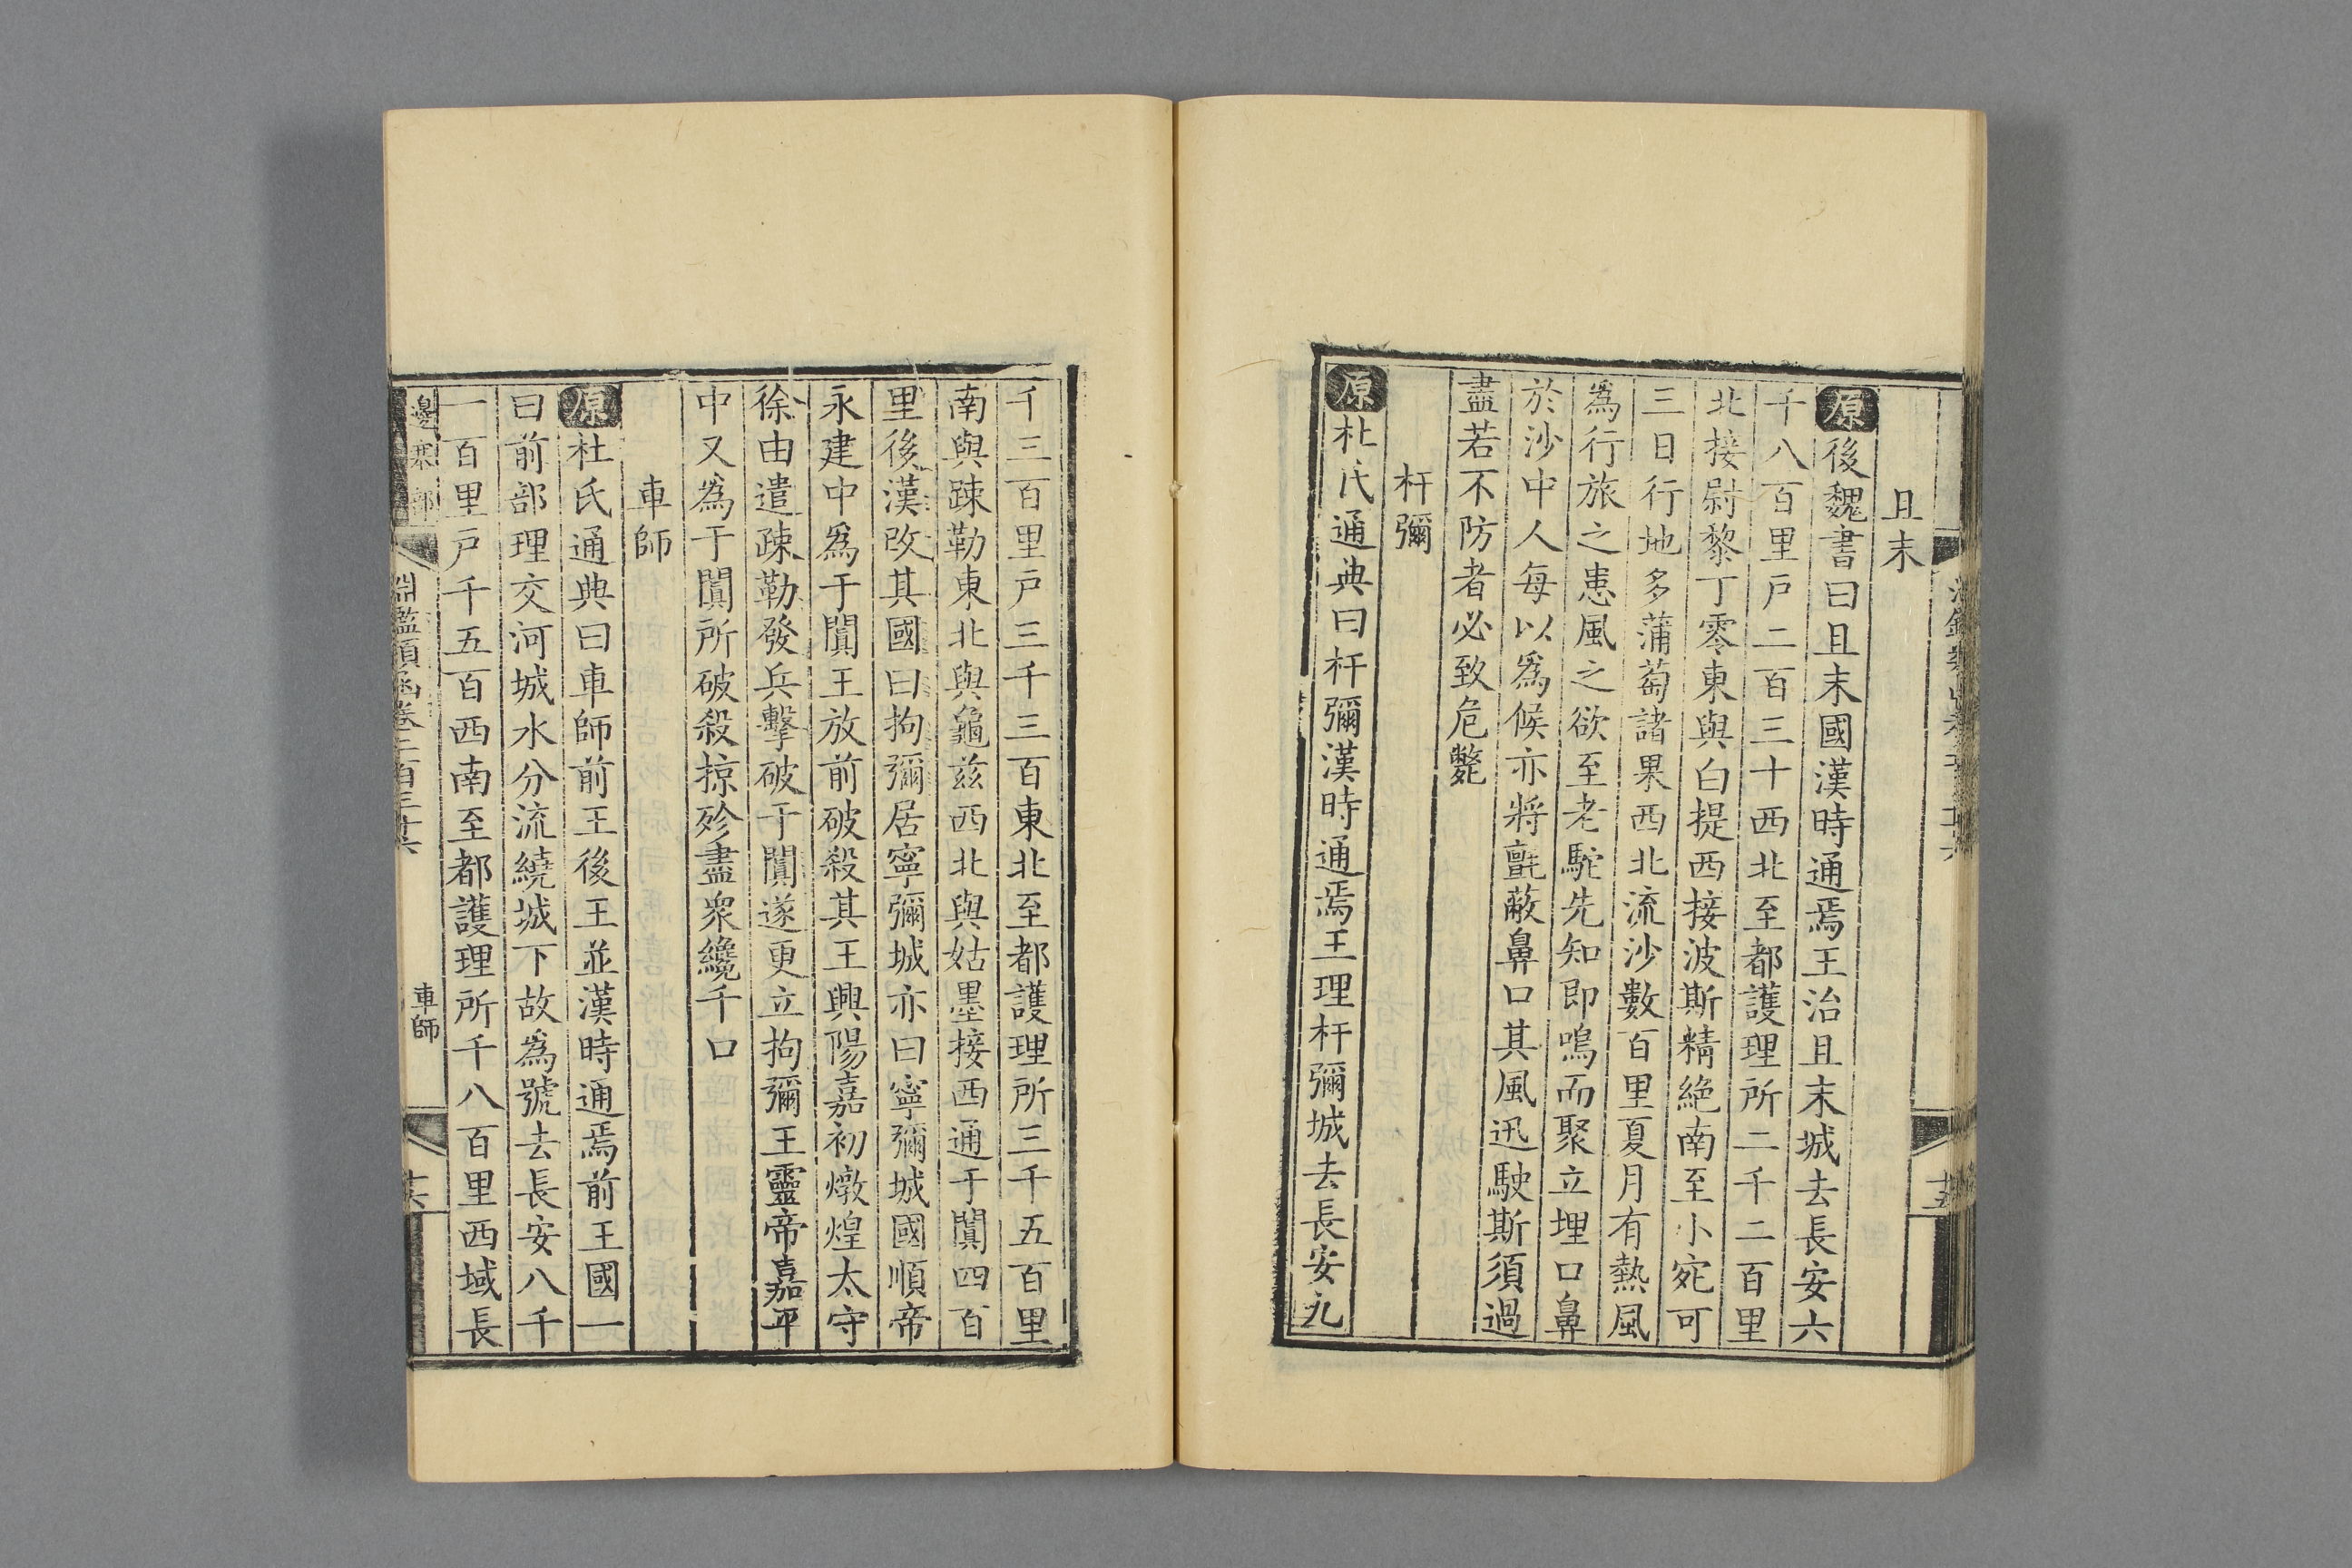 且末
原後魏書曰且末國漢時通焉王治且末城去長安六
千八百里戸二百三十西北至都護理所二千二百里
北接尉黎丁零東與白提西接波斯精絶南至小宛可
三日行地多蒲萄諸果西北流沙數百里夏月有熱風
為行旅之患風之欲至老駝先知即鳴而聚立埋口鼻
於沙中人每以為候亦將氈蔽鼻口其風迅駛斯須過
盡若不防者必致危斃
杆彌
原杜氏通典曰杆彌漢時通焉王理杆彌城去長安九
千三百里戸三千三百東北至都護理所三千五百里
南與疎勒東北與龜兹西北與姑墨接西通于闐四百
里後漢改其國曰拘彌居寧彌城亦曰寧彌城國順帝
永建中為于闐王放前破殺其王興陽嘉初燉煌太守
徐由遣疎勒發兵擊破于闐遂更立拘彌王靈帝嘉平
中又為于闐所破殺掠殄盡衆纔千口
車師
原杜氏通典曰車師前王後王並漢時通焉前王國一
曰前部理交河城水分流繞城下故為號去長安八千
一百里戸千五百西南至都護理所千八百里西域長
邊塞部
淵鑑類函卷二百三十六
車師
十六